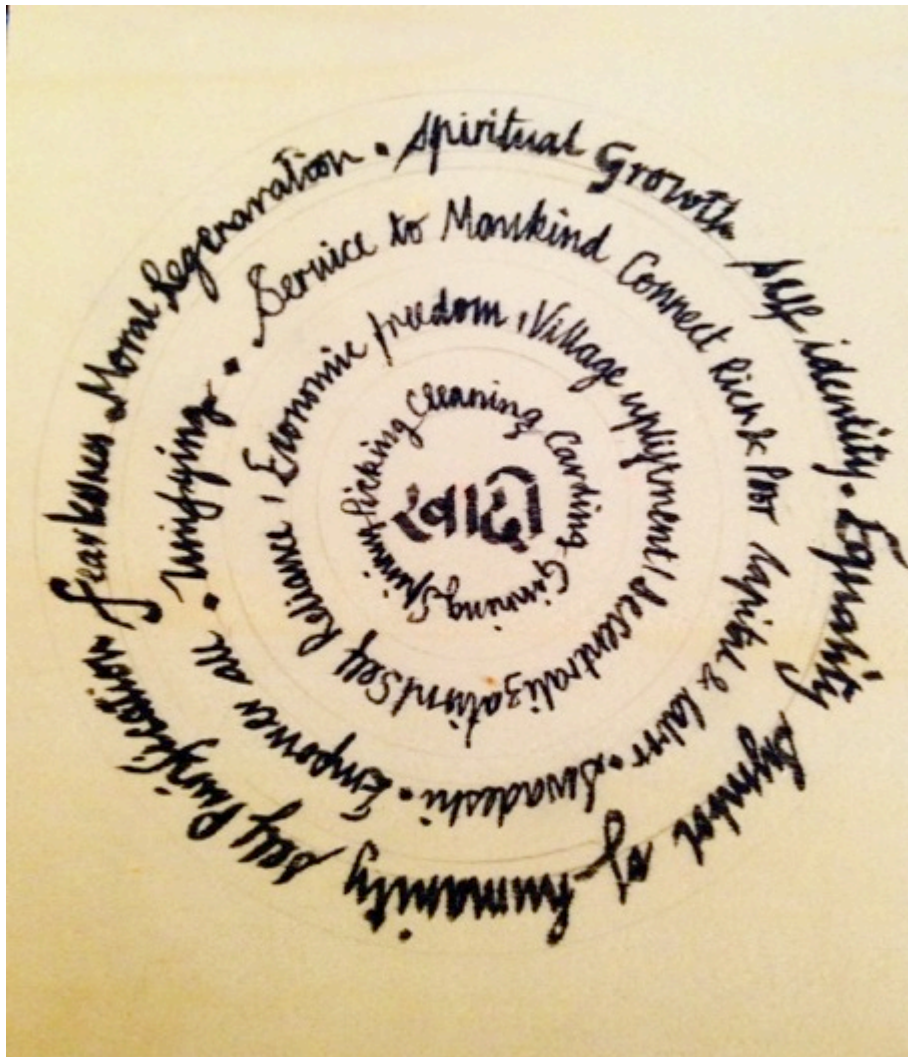 Spiritual Growth. Self identity. Equality Symbol of humanity. Self Purification Fearlessness. Moral Regenaration.
Service to Mankind Connect Rich & Poor Capital & labor. Swadeshi. Empower all. Unifying.
Economic freedom, Village upliftment, decentralization, Self Reliance,
Picking Cleaning Carding Ginning Spinning
खादी